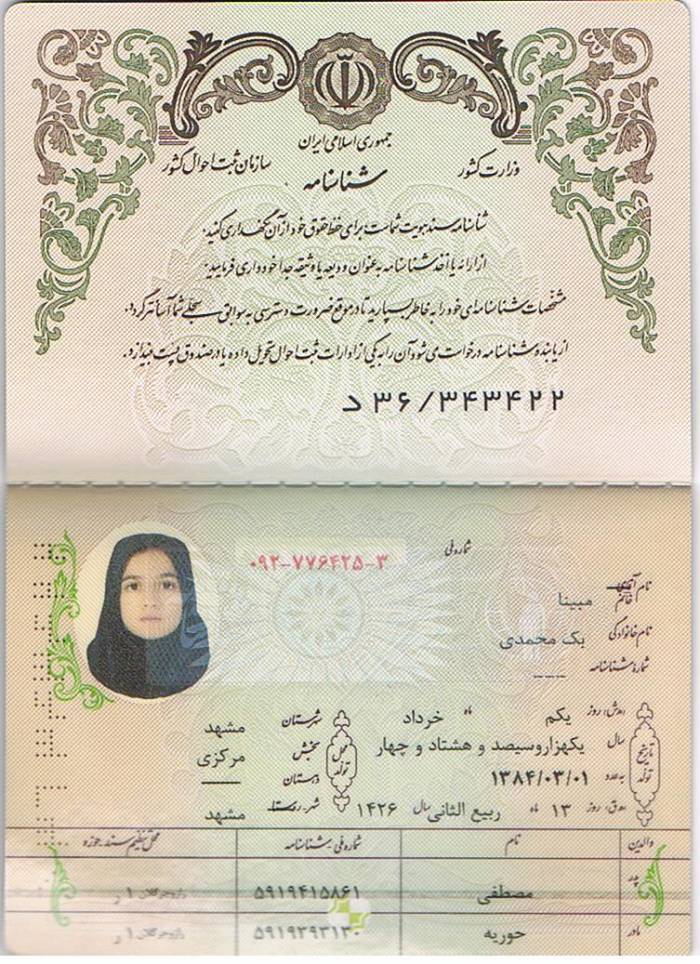 جمهوری اسلامی ایران
وزارت کشور
سازمان ثبت احوال کشور
شناسنامه
شناسنامه سند هویت شماست برای حفظ حقوق خود از آن نگهداری کنید.
از ارائه یا اخذ شناسنامه به عنوان ودیعه یا وثیقه جداً خودداری فرمایید.
مشخصات شناسنامه‌ای خود را به خاطر بسپارید تا در موقع ضرورت دسترسی به سوابق سجلی شما آسانتر گردد.
از یابنده شناسنامه درخواست می‌شود آن را به یکی از ادارات ثبت احوال تحویل داده یا در صندوق پست بیندازد.
د ۳۶/۳۴۳۴۲۲
شماره ملی ۰۹۲-۷۷۶۴۲۵-۳
نام آقای خانم مبینا
نام خانوادگی بک محمدی
شماره شناسنامه ---
تاریخ تولد
روز یکم ماه خرداد
سال یکهزاروسیصد و هشتاد و چهار
به عدد ۱۳۸۴/۰۳/۰۱
روز ۱۳ ماه ربیع الثانی سال ۱۴۲۶
محل تولد
شهرستان مشهد
بخش مرکزی
دهستان ——
شهر-روستا مشهد
والدین نام شماره ملی-شناسنامه محل تنظیم سند-حوزه
پدر مصطفی ۵۹۱۹۴۱۵۸۶۱
مادر حوریه ۵۹۱۹۲۹۳۱۳۰